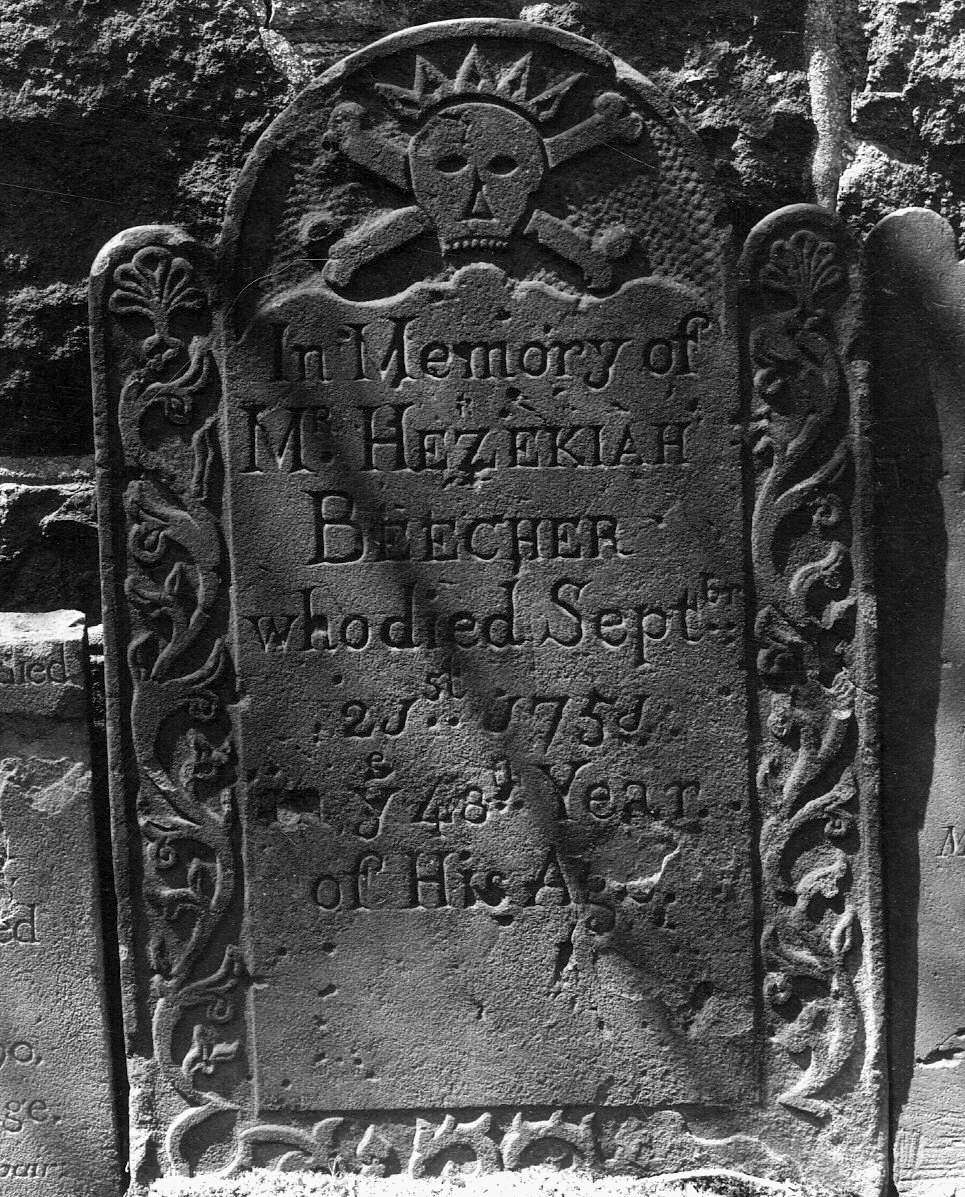 In Memory of
Mʀ HEZEKIAH
BEECHER
who died Septᵇʳ
21ˢᵗ 1751
in yᵉ 48ᵈ Year
of His Age
died
ed
90,
ge.
hair
M